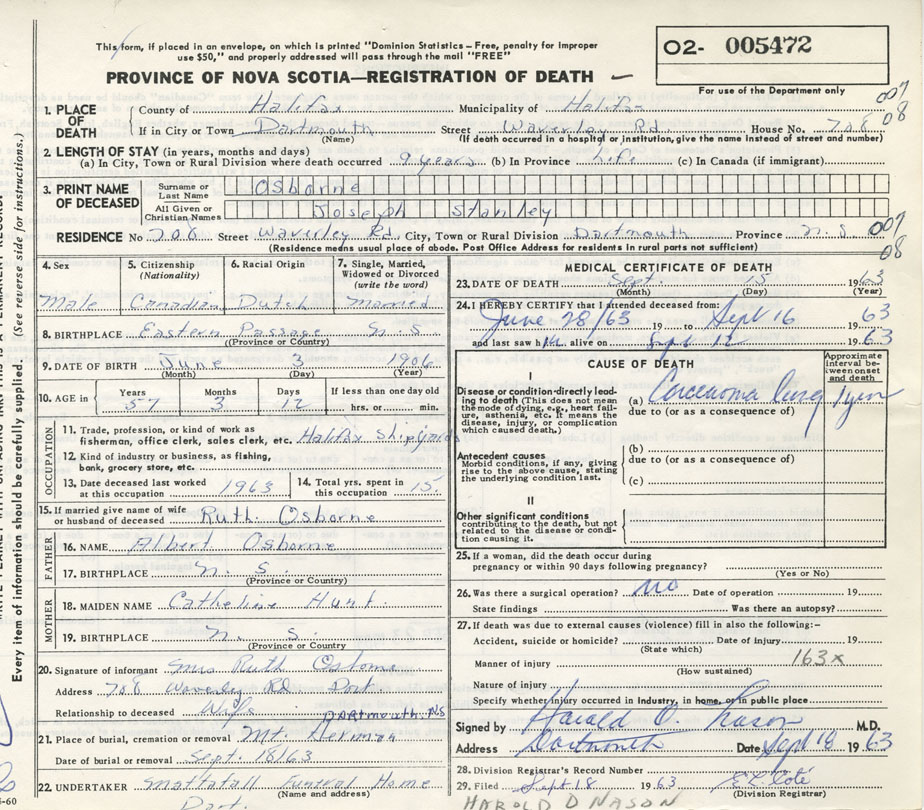 This form, if placed in an envelope, on which is printed "Dominion Statistics – Free, penalty for improper
use $50," and properly addressed will pass through the mail "FREE"
PROVINCE OF NOVA SCOTIA—REGISTRATION OF DEATH
02- 005472
For use of the Department only
1. PLACE OF DEATH
County of Halifax Municipality of Halifax
007
08
If in City or Town Dartmouth Street Waverley Rd. House No. 708
(Name) (If death occurred in a hospital or institution, give the name instead of street and number)
2. LENGTH OF STAY (in years, months and days)
(a) In City, Town or Rural Division where death occurred 9 years (b) In Province Life (c) In Canada (if immigrant)
3. PRINT NAME OF DECEASED
Surname or Last Name Osborne
All Given or Christian Names Joseph Stanley
RESIDENCE No 708 Street Waverley Rd. City, Town or Rural Division Dartmouth Province N.S
007
08
(Residence means usual place of abode. Post Office Address for residents in rural parts not sufficient)
4. Sex
Male
5. Citizenship
(Nationality)
Canadian
6. Racial Origin
Dutch
7. Single, Married, Widowed or Divorced
(write the word)
married
8. BIRTHPLACE Eastern Passage N. S
(Province or Country)
9. DATE OF BIRTH June 3 1906
(Month) (Day) (Year)
10. AGE in
Years 57
Months 3
Days 12
If less than one day old
hrs. or min.
OCCUPATION
11. Trade, profession, or kind of work as
fisherman, office clerk, sales clerk, etc. Halifax Shipyards
12. Kind of industry or business, as fishing,
bank, grocery store, etc.
13. Date deceased last worked
at this occupation 1963
14. Total yrs. spent in
this occupation 15.
15. If married give name of wife
or husband of deceased Ruth Osborne
FATHER
16. NAME Albert Osborne
17. BIRTHPLACE N. S.
(Province or Country)
MOTHER
18. MAIDEN NAME Catherine Hunt
19. BIRTHPLACE N. S.
(Province or Country
20. Signature of informant Mrs Ruth Osborne
Address 708 Waverley Rd Dart.
Relationship to deceased Wife
DARTMOUTH, NS
21. Place of burial, cremation or removal Mt. Herman
Date of burial or removal Sept. 18/63
22. UNDERTAKER Mattatall Funeral Home
(Name and address)
Dart.
MEDICAL CERTIFICATE OF DEATH
23. DATE OF DEATH Sept. 15 1963
(Month) (Day) (Year)
24. I HEREBY CERTIFY that I attended deceased from:
June 28/63 19 to Sept 16 63
19
and last saw him alive on Sept 12 1963
CAUSE OF DEATH
Approximate interval between onset and death
I
Disease or condition directly leading to death (This does not mean the mode of dying, e.g., heart failure, asthenia, etc. It means the disease, injury, or complication which caused death).
(a) Carcinoma lung 1 year
due to (or as a consequence of)
Antecedent causes
Morbid conditions, if any, giving rise to the above cause, stating the underlying condition last.
(b)
due to (or as a consequence of)
(c)
II
Other significant conditions
contributing to the death, but not related to the disease or condition causing it.
25. If a woman, did the death occur during
pregnancy or within 90 days following pregnancy?
(Yes or No)
26. Was there a surgical operation? no Date of operation 19
State findings Was there an autopsy?
27. If death was due to external causes (violence) fill in also the following:–
Accident, suicide or homicide? Date of injury 19
(State which)
Manner of injury 163x
(How sustained)
Nature of injury
Specify whether injury occurred in industry, in home, or in public place
Signed by Harold D. Nason M.D.
Address Dartmouth Date Sept 18 1963
28. Division Registrar's Record Number
29. Filed Sept 18 1963
(Division Registrar)
HAROLD D NASON
Every item of information should be carefully supplied. (See reverse side for instructions.)